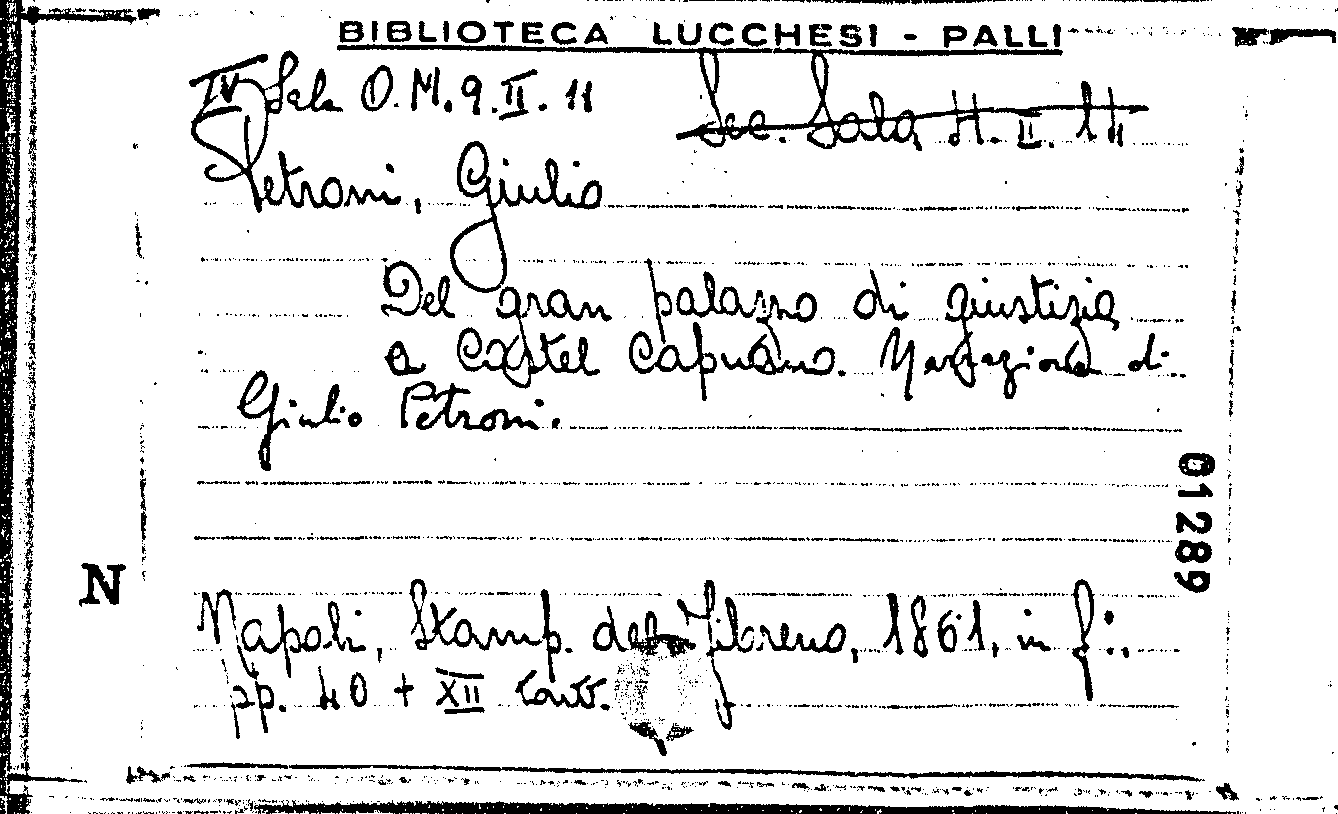 BIBLIOTECA LUCCHESI - PALLI
IV Sala O.M.9.II.11
Sec. Sala H.II.14
Petroni, Giulio
Del gran palazzo di giustizia
a Castel Capuano. Narrazione di
Giulio Petroni.
01289
N
Napoli, Stamp. del Fibreno, 1861, in f:.
pp. 40 + XII tavv.